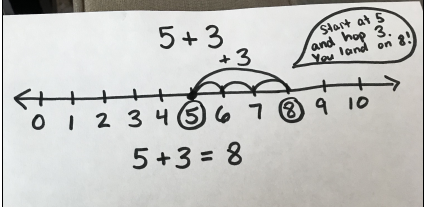 5 + 3
+ 3
Start at 5
and hop 3.
You land on 8!
0 1 2 3 4 5 6 7 8 9 10
5 + 3 = 8